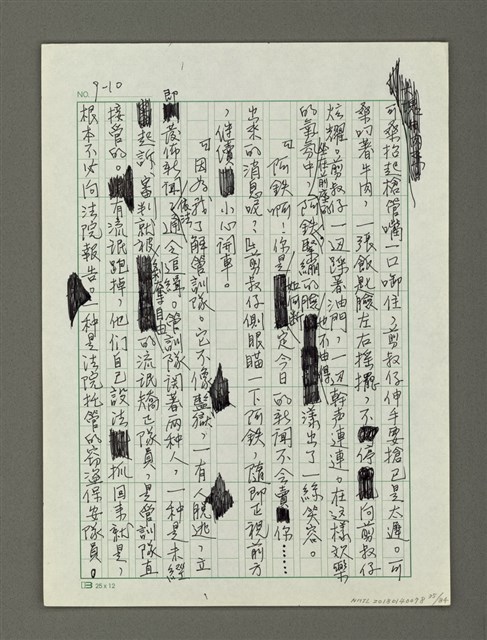 NO. 9-10
可桑抬起槍管嘴一口啣住，剪叔仔伸手要搶已是太遲。可
桑叼著牛肉，一張飯匙臉左右搖擺，不停向剪叔仔
炫耀。剪叔仔一边踩着油門，一边幹声連連。在这樣欢樂
的氣氛中，坐在前座的阿鉄緊繃的臉也不由得漾出了一絲笑容。
「阿鉄啊！你是如何断定今日的新聞不会賣你……
出來的消息呢？」剪叔仔側眼瞄一下阿鉄，隨即正視前方
，继續小心開車。
「因為我了解管訓隊。它不像監獄，一有人脫逃，立
即發佈新聞，通令追緝。管訓隊関着兩种人，一种是未經
起訴、審判就被剝奪自由的流氓矯正隊員，是管訓隊直
接管的。有流氓跑掉，他们自己設法抓回來就是，
根本不必向法院報告。一种是法院托管的竊盗保安隊員。
25×12